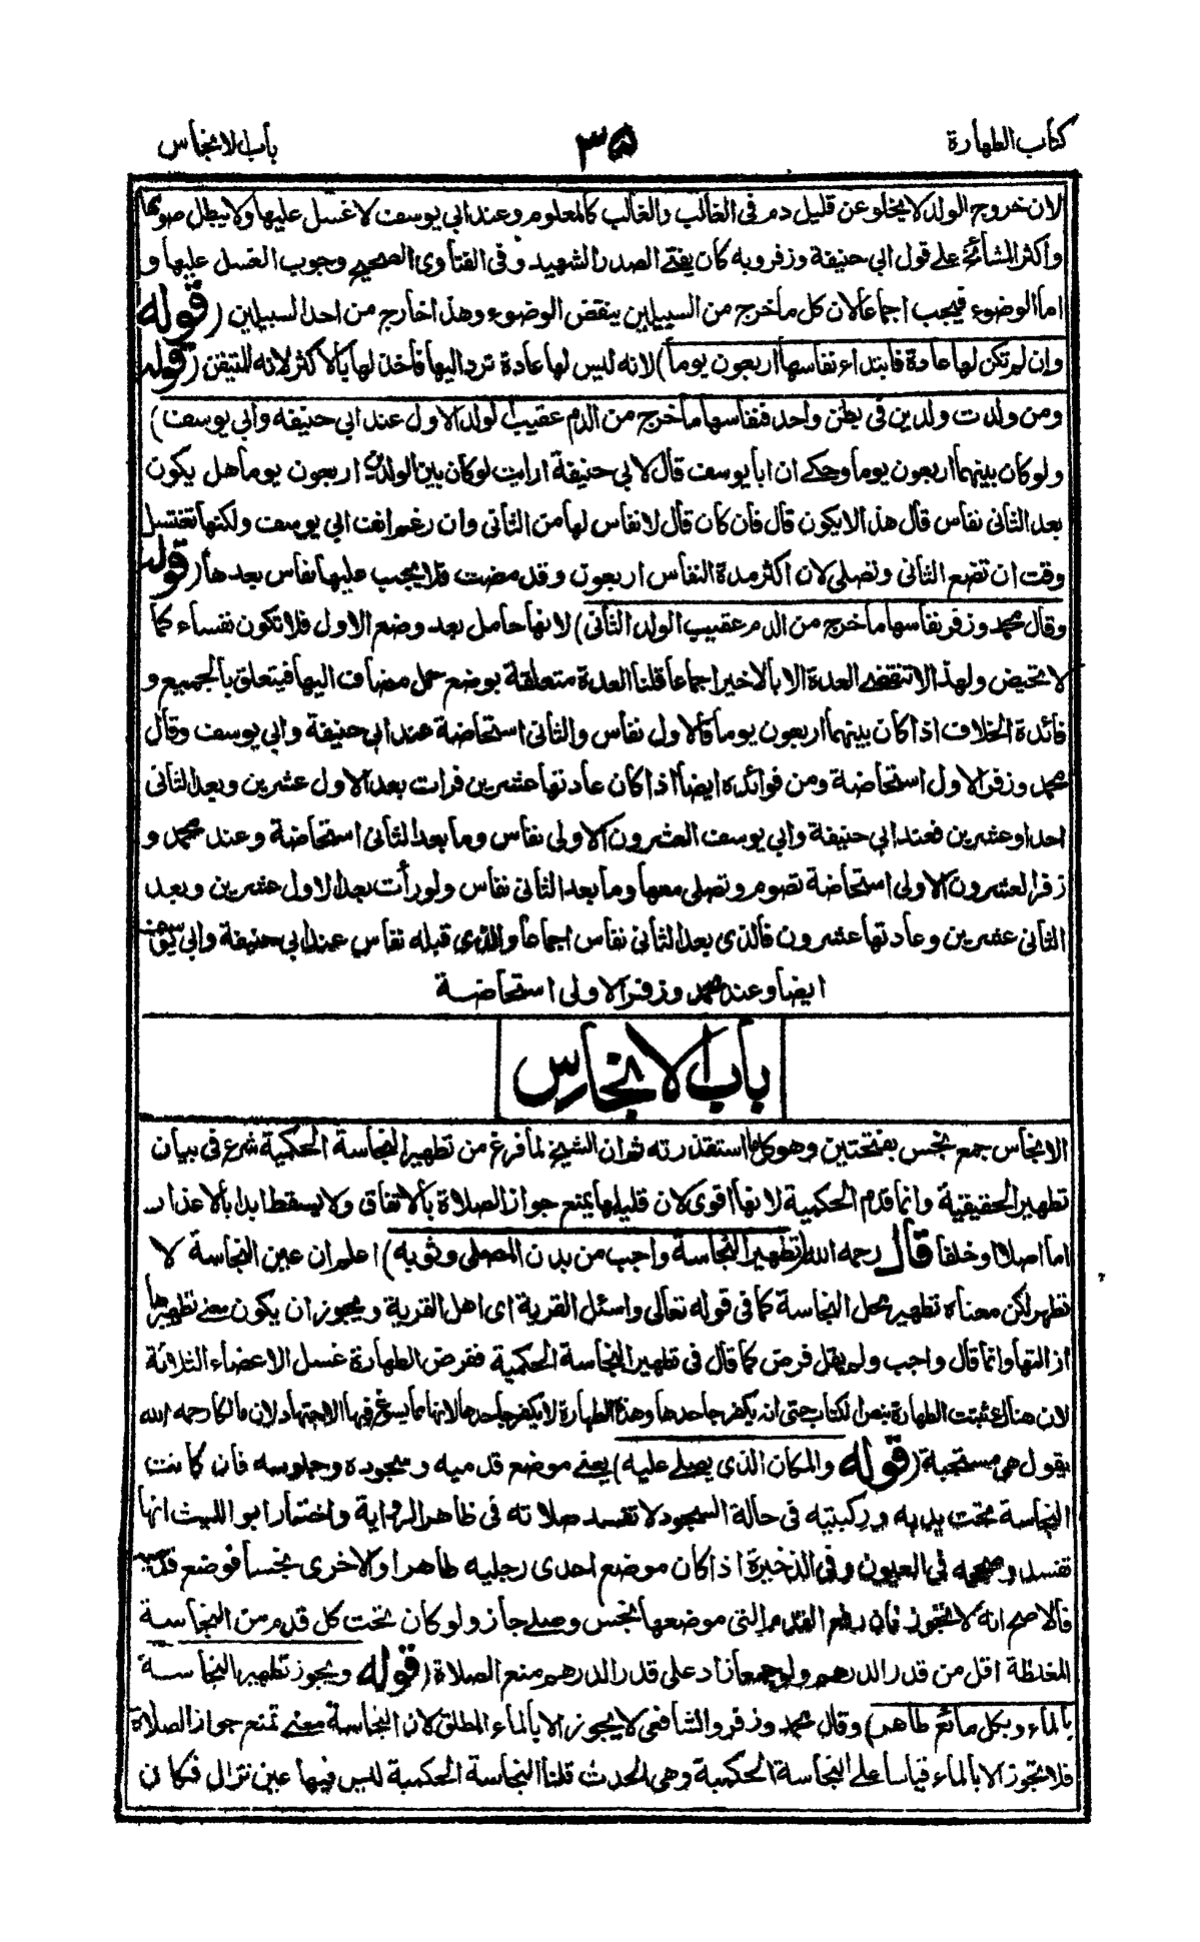 كتاب الطهارة ٣٥ باب الانجاس
لان خروج الولد لا يخلو عن قليل دم فى الغالب والغالب كالمعلوم وعند ابي يوسف لا غسل عليها ولا يبطل صومها
واكثر المشائخ على قول ابي حنيفة وزفر وبه كان يفتى الصدر الشهيد وفى الفتاوى الصحيح وجوب الغسل عليها و
اما الوضوء فيجب اجماعا لان كل ما خرج من السبيلين ينقض الوضوء وهذا خارج من احد السبيلين (قوله
وان لم تكن لها عادة فابتداء نفاسها اربعون يوما) لانه ليس لها عادة ترد اليها فاخذ لها بالاكثر لانه المتيقن (قوله
ومن ولدت ولدين فى بطن واحد فنفاسها ما خرج من الدم عقيب الولد الاول عند ابي حنيفه وابي يوسف)
ولو كان بينهما اربعون يوما وحكے ان ابا يوسف قال لابي حنيفة ارايت لو كان بين الولدين اربعون يوما هل يكون
بعد الثانى نفاس قال هذا لا يكون قال فان كان قال لا نفاس لها من الثانى وان رغم انف ابي يوسف ولكنها تغتسل
وقت ان تضع الثانى وتصلى لان اكثر مدة النفاس اربعون وقد مضت فلا يجب عليها نفاس بعدها (قوله
وقال محمد وزفر نفاسها ما خرج من الدم عقيب الولد الثانى) لانها حامل بعد وضع الاول فلا تكون نفساء كما
لا تحيض ولهذا لا تنقضے العدة الا بالاخير اجماعا قلنا العدة متعلقة بوضع حمل مضاف اليها فيتعلق بالجميع و
فائدة الخلاف اذا كان بينهما اربعون يوما فالاول نفاس والثانى استحاضة عند ابي حنيفة وابي يوسف وقال
محمد وزفر الاول استحاضة ومن فوائده ايضا اذا كان عادتها عشرين فرات بعد الاول عشرين وبعد الثانى
احدا وعشرين فعند ابي حنيفة وابي يوسف العشرون الاولى نفاس وما بعد الثانى استحاضة وعند محمد و
زفر العشرون الاولى استحاضة تصوم وتصلى معها وما بعد الثانى نفاس ولو رأت بعد الاول عشرين وبعد
الثانى عشرين وعادتها عشرون فالذى بعد الثانى نفاس اجماعا والذى قبله نفاس عند ابي حنيفة وابي يوسف
ايضا وعند محمد وزفر الاولى استحاضة
باب الانجاس
الانجاس جمع نجس بفتحتين وهو كل ما استقذرته ثم ان الشيخ لما فرغ من تطهير النجاسة الحكمية شرع فى بيان
تطهير الحقيقية وانما قدم الحكمية لانها اقوى لان قليلها يمنع جواز الصلاة بالاتفاق ولا يسقط ابدا بالاعذار
اما اصلا او خلفا قال رحمه الله (تطهير النجاسة واجب من بدن المصلى وثوبه) اعلم ان عين النجاسة لا
تطهر لكن معناه تطهير محل النجاسة كما فى قوله تعالى واسئل القرية اى اهل القرية ويجوز ان يكون معنے تطهيرها
ازالتها وانما قال واجب ولم يقل فرض كما قال فى تطهير النجاسة الحكمية ففرض الطهارة غسل الاعضاء الثلاثة
لان هنالك ثبتت الطهارة بنص الكتاب حتى انه يكفر جاحدها وهذه الطهارة لا يكفر جاحدها لانها مما يسوغ فيها الاجتهاد لان مالكا رحمه الله
يقول هى مستحبة (قوله والمكان الذى يصلے عليه) يعنے موضع قدميه وسجوده وجلوسه فان كانت
النجاسة تحت يديه وركبتيه فى حالة السجود لا تفسد صلاته فى ظاهر الرواية واختار ابو الليث انها
تفسد وصححه فى العيون وفى الذخيرة اذا كان موضع احدى رجليه طاهرا والاخرى نجسا فوضع قدميه
فالاصح انه لا تجوز فان رفع القدم التى موضعها نجس وصلے جاز ولو كان تحت كل قدم من النجاسة
المغلظة اقل من قدر الدرهم ولو جمعا زاد على قدر الدرهم منع الصلاة (قوله ويجوز تطهير النجاسة
بالماء وبكل مائع طاهر) وقال محمد وزفر والشافعى لا يجوز الا بالماء المطلق لان النجاسة معنے تمنع جواز الصلاة
فلا تجوز الا بالماء قياسا على النجاسة الحكمية وهى الحدث قلنا النجاسة الحكمية ليس فيها عين تزال فكان